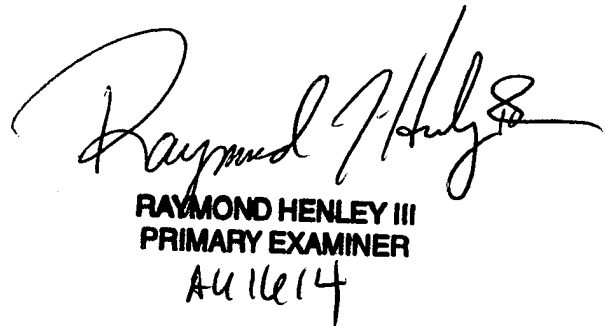 Raymond J. Henley III
RAYMOND HENLEY III
PRIMARY EXAMINER
AU 1614